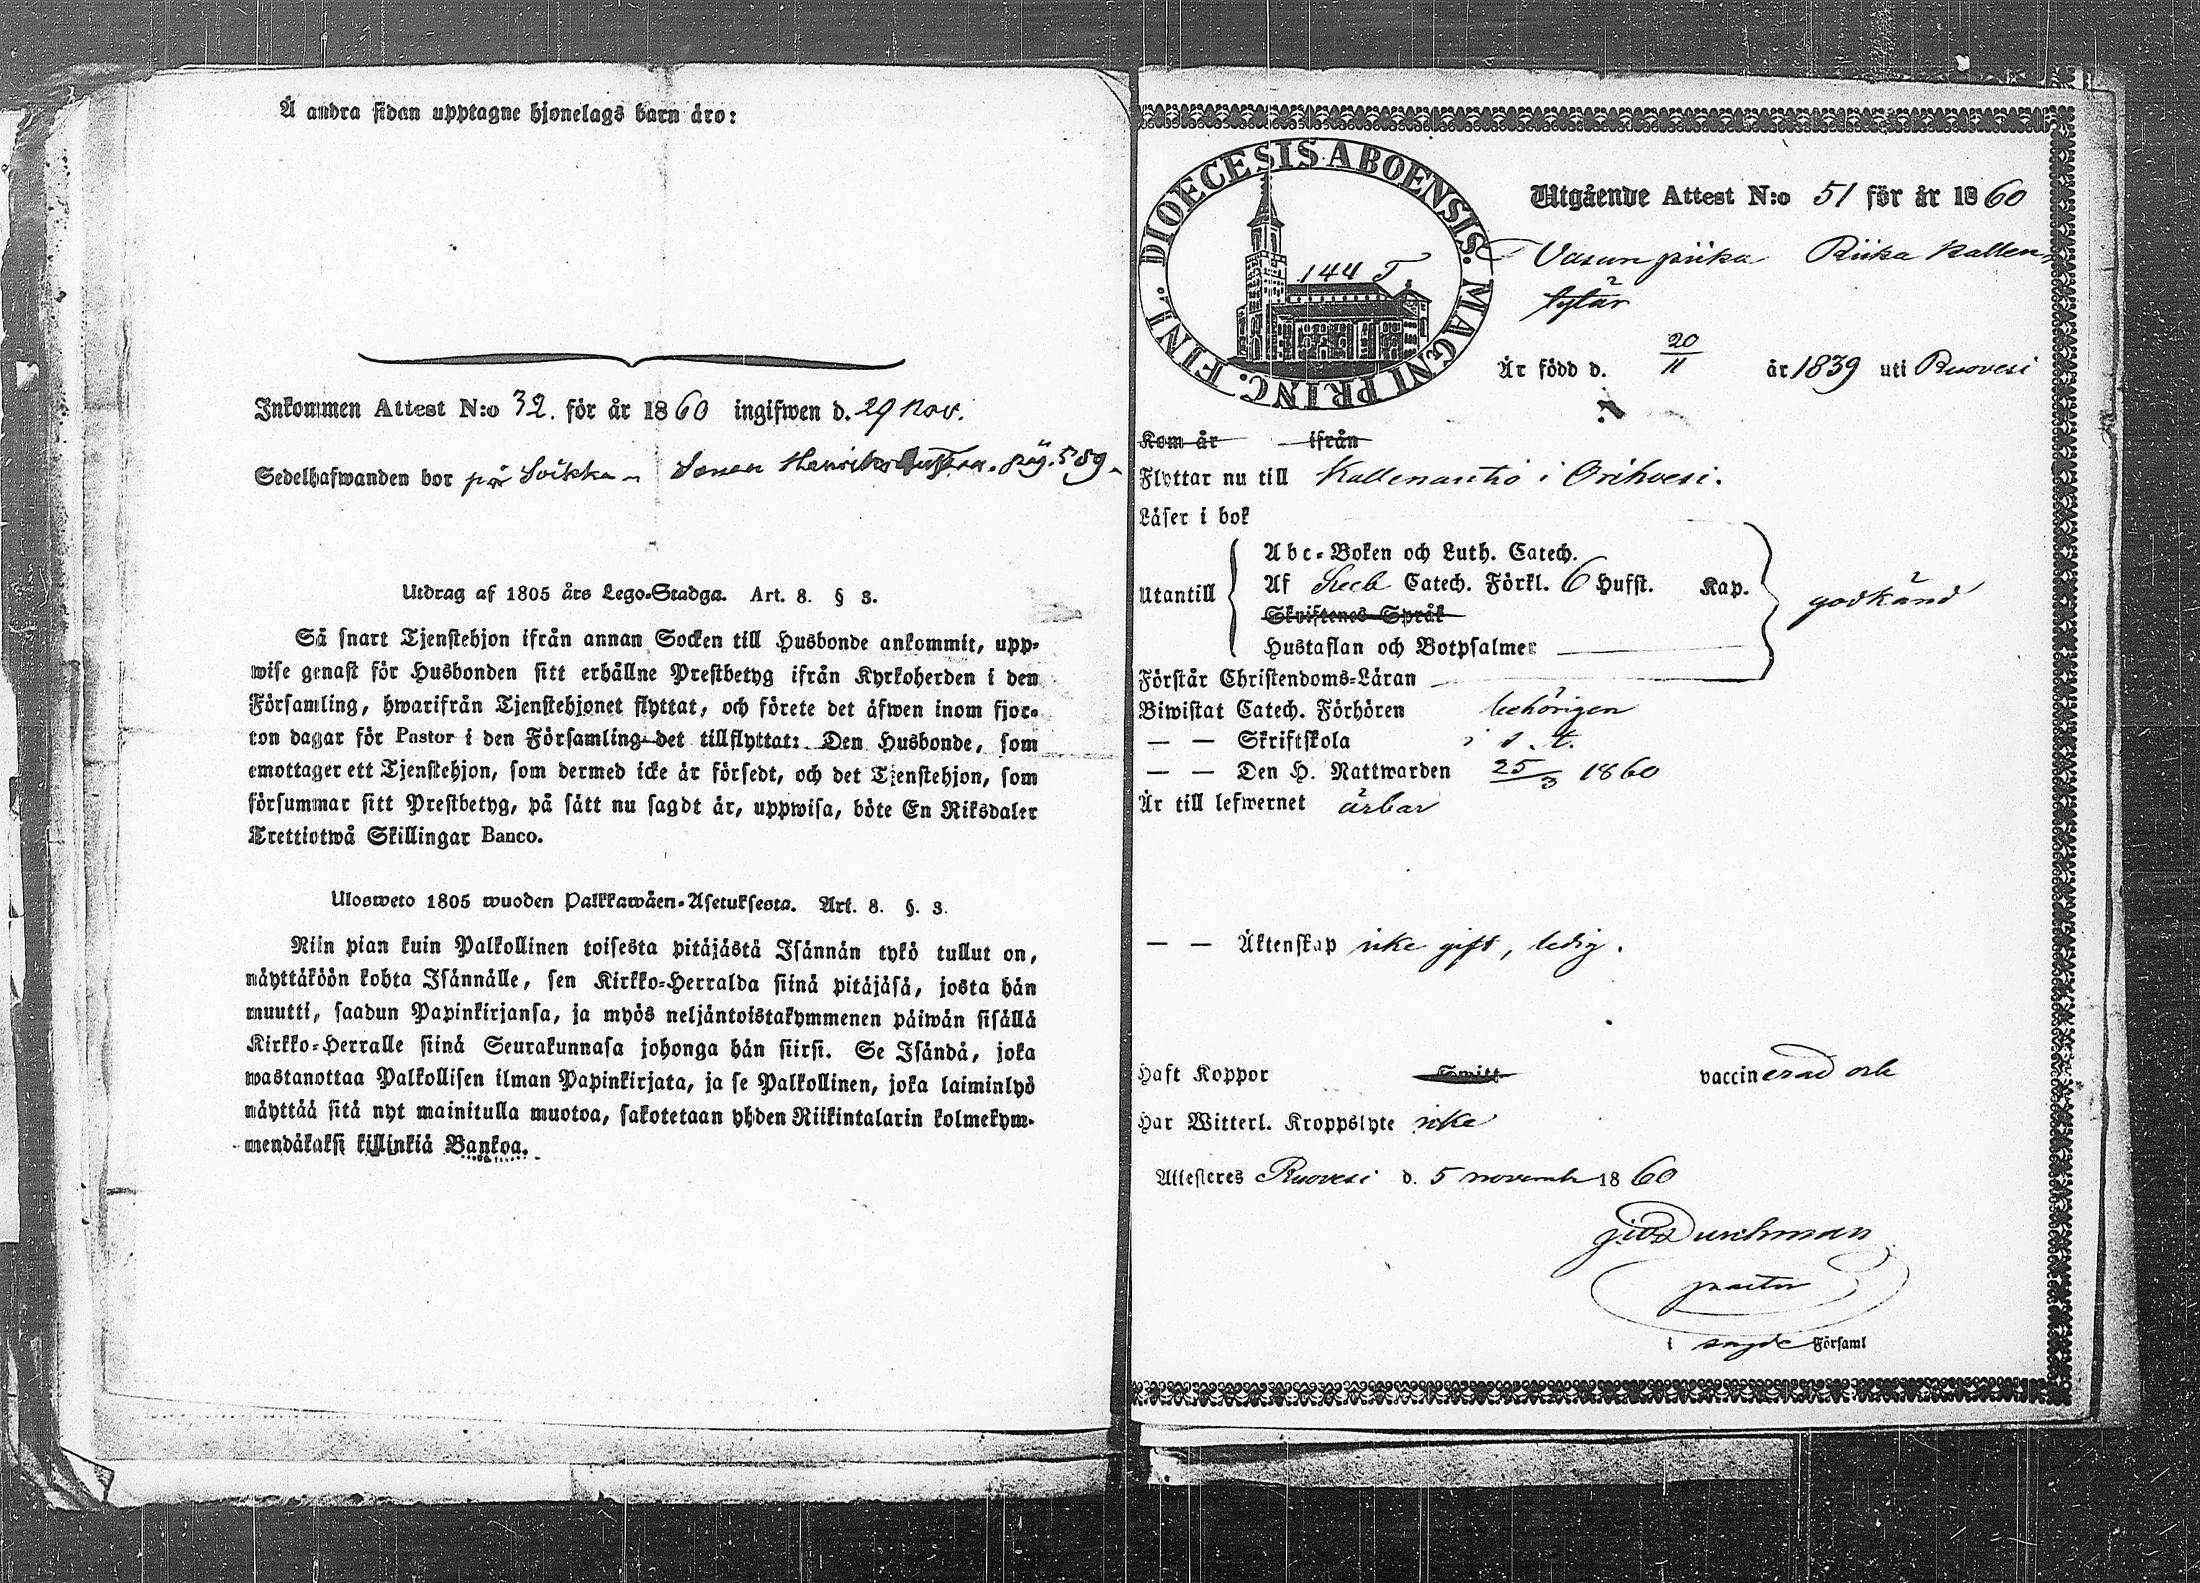 Å andra sidan upptagne hjonelags barn äro:
Inkommen Attest N:o 32. för år 1860 ingifwen d. 29 Nov.
Sedelhafwanden bor på pag. 589
Utdrag af 1805 års Lego-Stadga. Art. 8. § 3.
Så snart Tjenstehjon ifrån annan Socken till Husbonde ankommit, upp-
wise genast för Husbonden sitt erhållne Prestbetyg ifrån Kyrkoherden i den
Församling, hwarifrån Tjenstehjonet flyttat, och förete det äfwen inom fjor-
ton dagar för Pastor i den Församling det tillflyttat: Den Husbonde, som
emottager ett Tjenstehjon, som dermed icke är försedt, och det Tjenstehjon, som
försummar sitt Prestbetyg, på sätt nu sagdt är, uppwisa, böte En Riksdaler
Trettiotwå Skillingar Banco.
Ulosweto 1805 wuoden Palkkawäen-Asetuksesta. Art. 8. §. 3.
Niin pian kuin Palkollinen toisesta pitäjästä Isännän tykö tullut on,
näyttäköön kohta Isännälle, sen Kirkko-Herralda siinä pitäjäsä, josta hän
muutti, saadun Papinkirjansa, ja myös neljäntoistakymmenen päiwän sisällä
Kirkko-Herralle siinä Seurakunnasa johonga hän siirsi. Se Isändä, joka
wastanottaa Palkollisen ilman Papinkirjata, ja se Palkollinen, joka laiminlyö
näyttää sitä nyt mainitulla muotoa, sakotetaan yhden Riikintalarin kolmekym-
mendäkaksi killinkiä Bankoa.
DIOECESIS ABOENSIS. MAGNI PRINC. FINL.
144
Utgående Attest N:o 51 för år 1860
piika Riika Kallen-
tytär
Är född d. 20/11 år 1839 uti Ruovesi
Kom år ifrån
Flyttar nu till Kallenautio i Orihvesi.
Läser i bok
Utantill
Abc-Boken och Luth. Catech.
Af Catech. Förkl. 6 Hufst. Kap.
Skriftenes Språk
Hustaflan och Botpsalmer
godkänd
Förstår Christendoms-Läran
Biwistat Catech. Förhören behörigen
— — Skriftskola i s. t.
— — Den H. Nattwarden 25/3 1860
Är till lefwernet ärbar
— — Äktenskap icke gift, ledig.
Haft Koppor Smitt vaccinerad och
Har Witterl. Kroppslyte icke
Attesteres Ruovesi d. 5 novemb 1860
Durchman
pastor
i sagde Församl